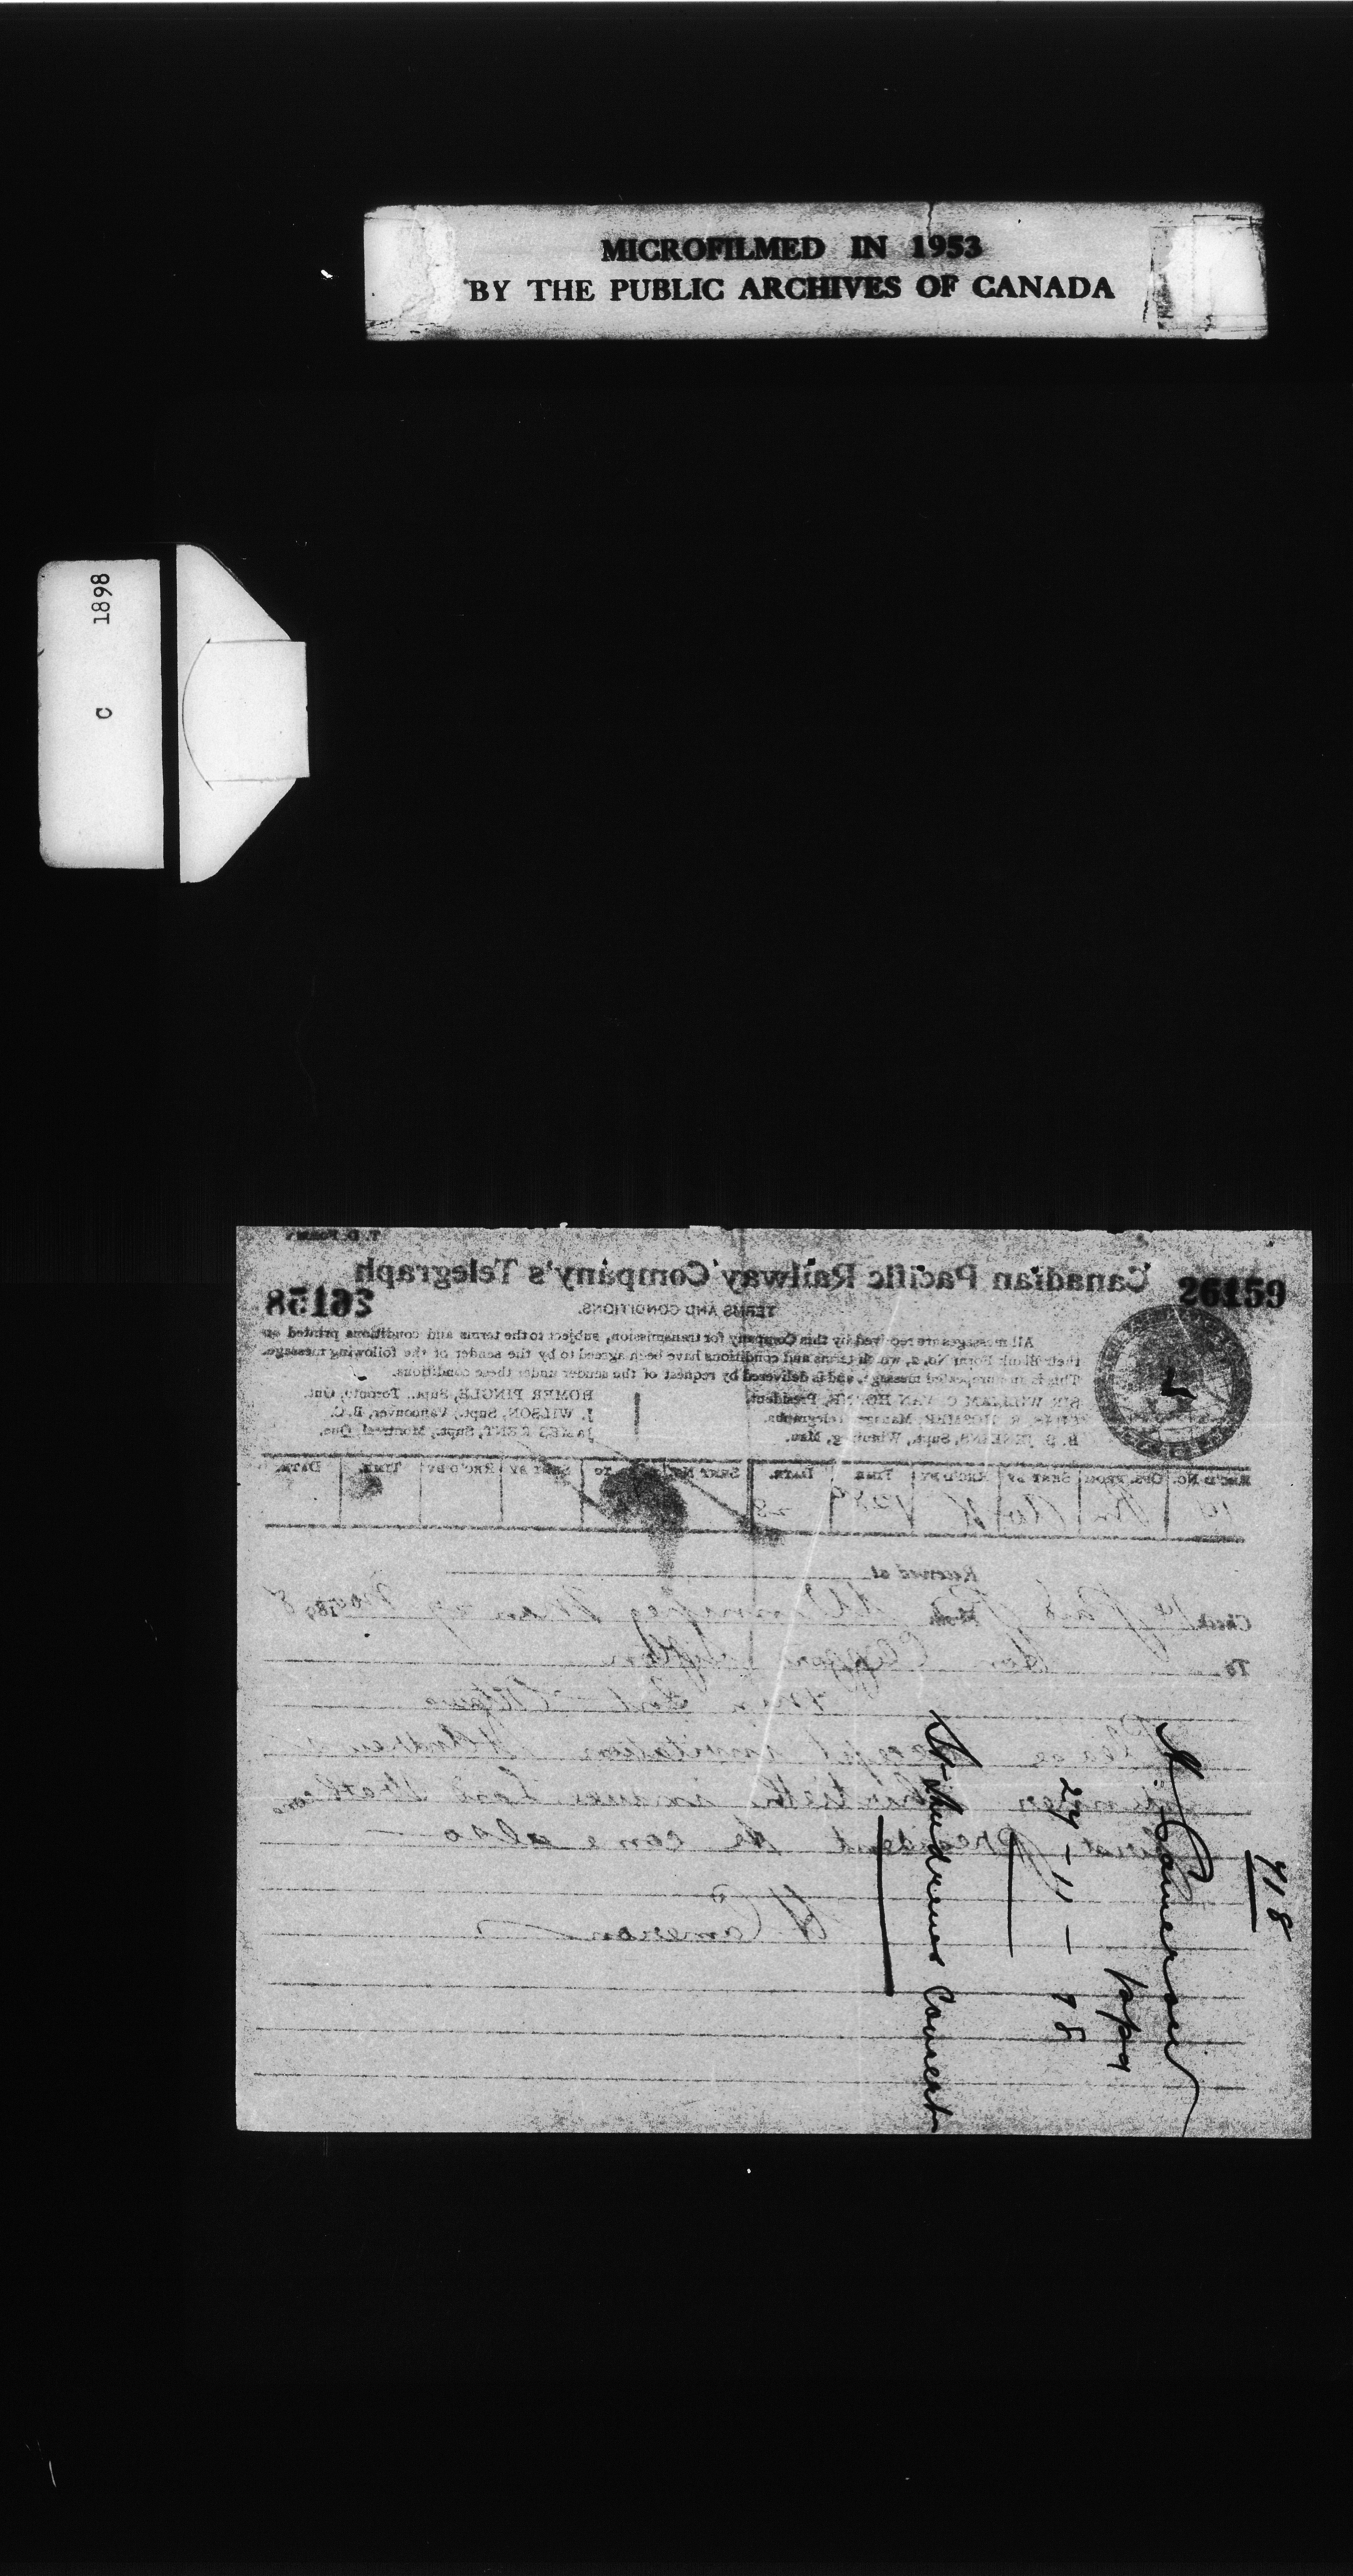 MICROFILMED IN 1953
BY THE PUBLIC ARCHIVES OF CANADA
C 1898
T. D. FORM
Canadian Pacific Railway Company's Telegraph
26159
26158
TERMS AND CONDITIONS.
All messages are received by this Company for transmission, subject to the terms and conditions printed on
their Blank Form No. 2, which terms and conditions have been agreed to by the sender of the following message.
This is an unrepeated message, and is delivered by request of the sender under these conditions.
SIR WILLIAM C. VAN HORNE, President.
HOMER PINGLE, Supt., Toronto, Ont.
CHAS. R. HOSMER, Manager Telegraphs.
J. WILSON, Supt., Vancouver, B.C.
B. S. JENKINS, Supt., Winnipeg, Man.
JAMES KENT, Supt., Montreal, Que.
REC'D No. OFS. FROM SENT BY REC'D BY TIME DATE. SENT No. TO SENT BY REC'D BY TIME. DATE.
28
Received at
Check Paid From Winnipeg Man 29 Nov 1898
To Hon Clifford Sifton
Min Int Ottawa
Please accept invitation St Andrews
dinner thirtieth induce Lord Strathcona
president to come also
H Cameron
718
H Cameron
29-11-98
St Andrews Concert